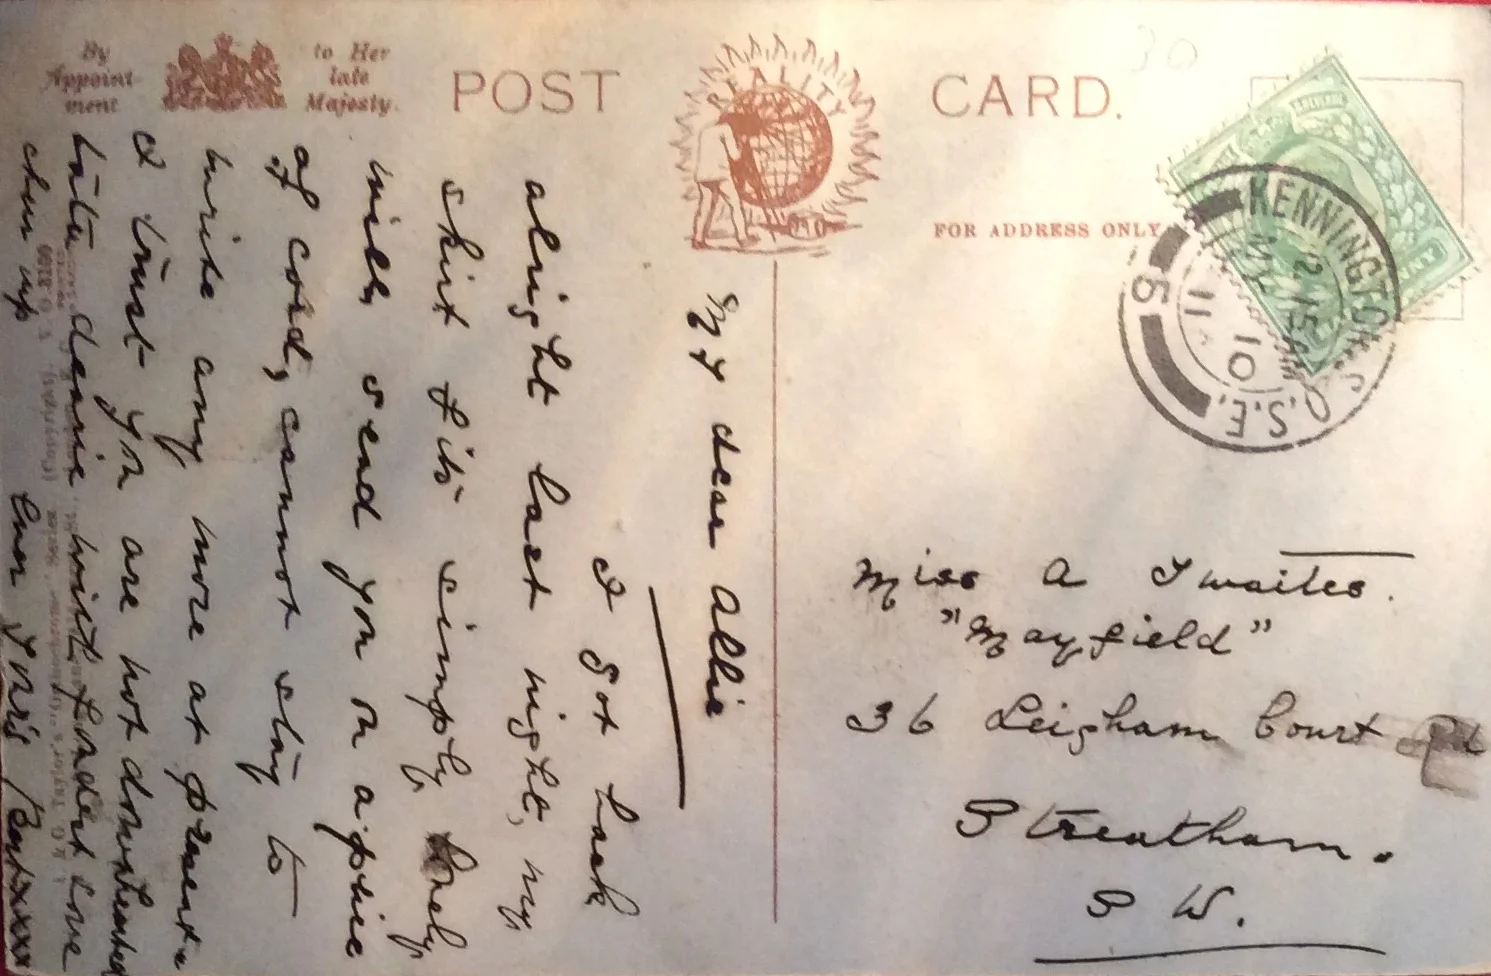 By
Appoint-
ment
to Her
late
Majesty.
POST CARD.
REALITY
30
FOR ADDRESS ONLY
KENNINGTON S.O.
S.E.
12 15 AM
MY 11
10
5
My dear Allie
I got back
alright last night, my
skirt fits simply
will send you on a
of cord, cannot stay to
write any more at present
I trust you are not downhearted
little dearie with fondest love
chin up Ever yours Bert xxxx
Miss A Twaites.
"Mayfield"
36 Leigham Court Rd
Streatham.
S W.